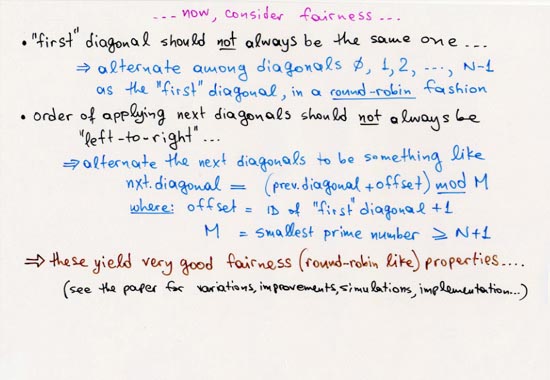 ... now, consider fairness ...
• "first" diagonal should not always be the same one ...
⇒ alternate among diagonals 0, 1, 2, ..., N-1
as the "first" diagonal, in a round-robin fashion
• order of applying next diagonals should not always be
"left-to-right" ...
⇒ alternate the next diagonals to be something like
nxt.diagonal = (prev.diagonal + offset) mod M
where: offset = ID of "first" diagonal + 1
M = smallest prime number ≥ N+1
⇒ these yield very good fairness (round-robin like) properties....
(see the paper for variations, improvements, simulations, implementation...)